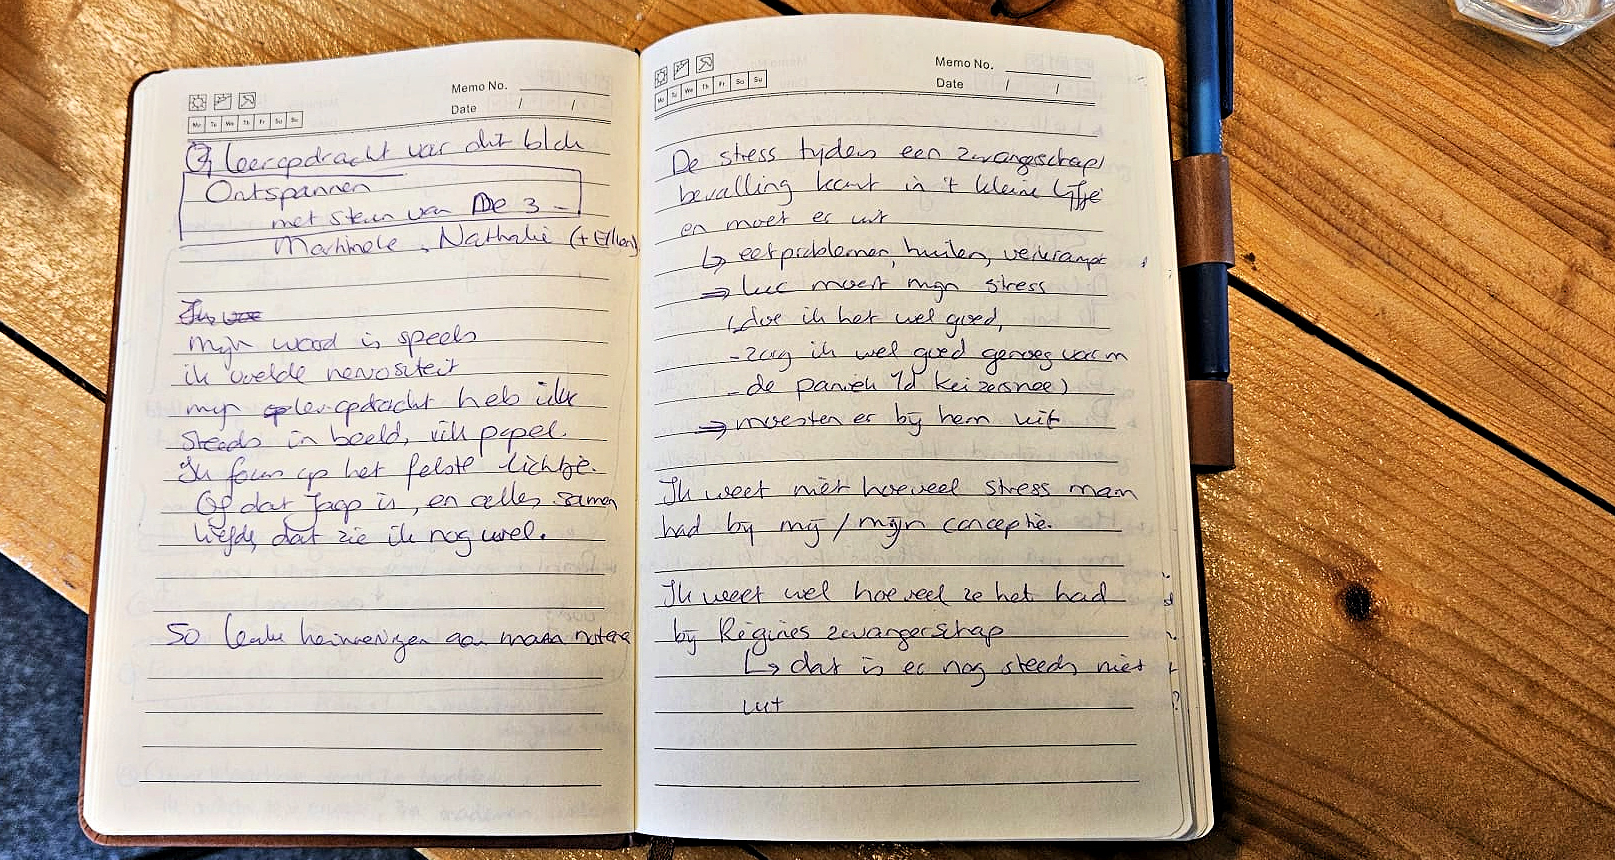 Memo No.
Date / /
Mo Tu We Th Fr Sa Su
leeropdracht van dit blok
Ontspannen
met steun van De 3 -
Martinele, Nathalie (+ Ellen)
mijn woord is speels
ik voelde nervositeit
mijn leeropdracht heb ik
steeds in beeld, vik papel.
Ik focus op het felste lichtje.
Of dat Jaap is, en alles samen
liefde, dat zie ik nog wel.
50 leuke herinneringen aan mam noteren
Memo No.
Date / /
Mo Tu We Th Fr Sa Su
De stress tijdens een zwangerschap/
bevalling komt in 't kleine lijfje
en moet er uit
↳ eetproblemen, huilen, verkrampt
⇒ Luc moest mijn stress
doe ik het wel goed,
- zorg ik wel goed genoeg voor m
- de paniek 1d keizersnee)
⇒ moesten er bij hem uit
Ik weet niet hoeveel stress mam
had bij mij / mijn conceptie.
Ik weet wel hoeveel ze het had
bij Régines zwangerschap
↳ dat is er nog steeds niet
uit